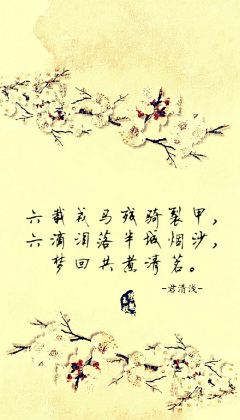 六载戎马残骑裂甲，
六滴泪落半城烟沙，
梦回共煮清茗。
-君清浅-